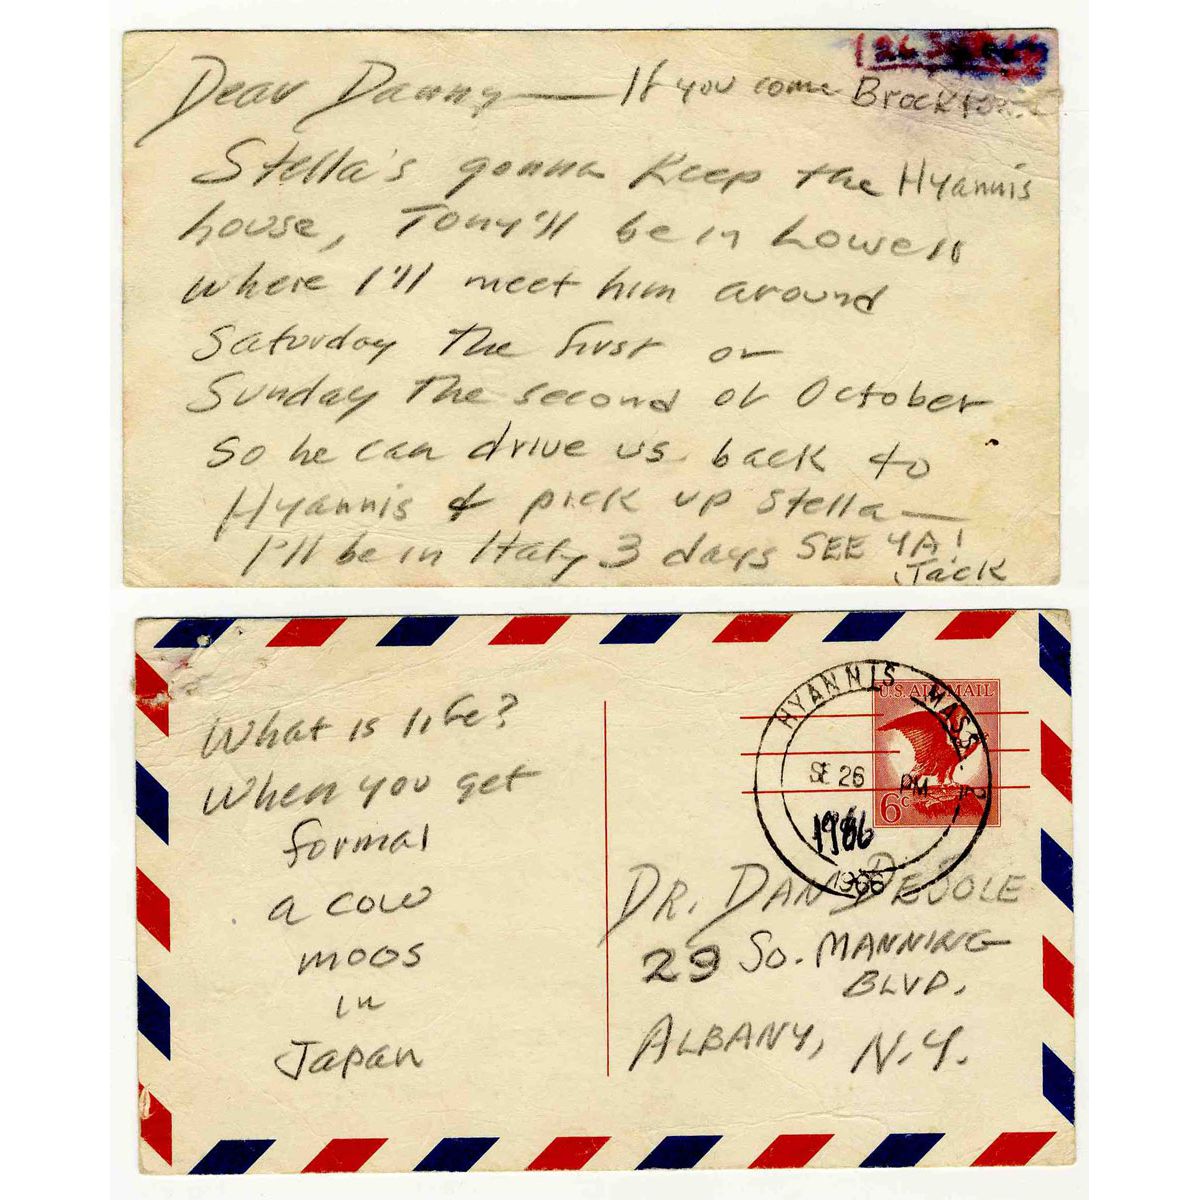 Dear Danny — If you come
Brockton
Stella's gonna keep the Hyannis
house, Tony'll be in Lowell
where I'll meet him around
Saturday the first or
Sunday the second of October
so he can drive us back to
Hyannis & pick up Stella —
I'll be in Italy 3 days SEE YA!
Jack
What is life?
When you get
formal
a cow
moos
in
Japan
HYANNIS MASS. 2
SE 26 PM
1966
1966
U.S. AIR MAIL
6c
DR. DAN DEJOLE
29 So. MANNING
BLVD.
ALBANY, N.Y.